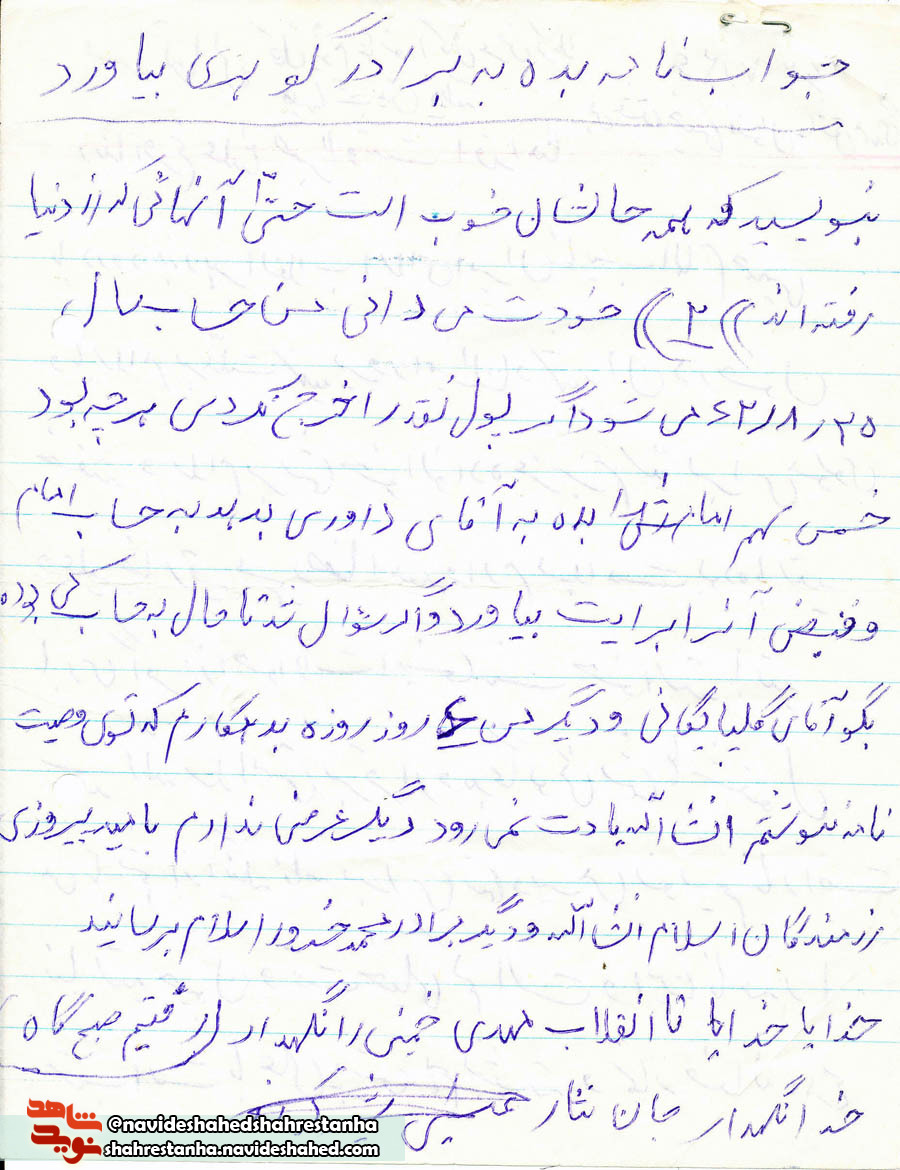 جواب نامه بده به برادر گوهری بیاورد
بنویسید که همه حالشان خوب است حتّی آنهائی که از دنیا
رفته اند )) ۲ (( خودت می دانی من حساب سال
می شود اگر پول نقد را خرج نکردی هر چه بود
خمس سهم امام را بده به آقای داوری بدهد به حساب امام
و قبض آنرا برایت بیاورد و اگر سئوال شد تا حال به حساب کی بوده
بگو آقای گلپایگانی و دیگر من روز روزه بدهکارم که توی وصیت
نامه ننوشتم انشاءالله یادت نمی رود دیگر عرضی ندارم بامید پیروزی
رزمندگان اسلام انشاءالله و دیگر برادر محمد خدور اسلام برسانید
خدایا خدایا تا انقلاب مهدی خمینی را نگهدار صبح گاه
خدانگهدار جان نثار
شاهد نوید
@navideshahedshahrestanha
shahrestanha.navideshahed.com